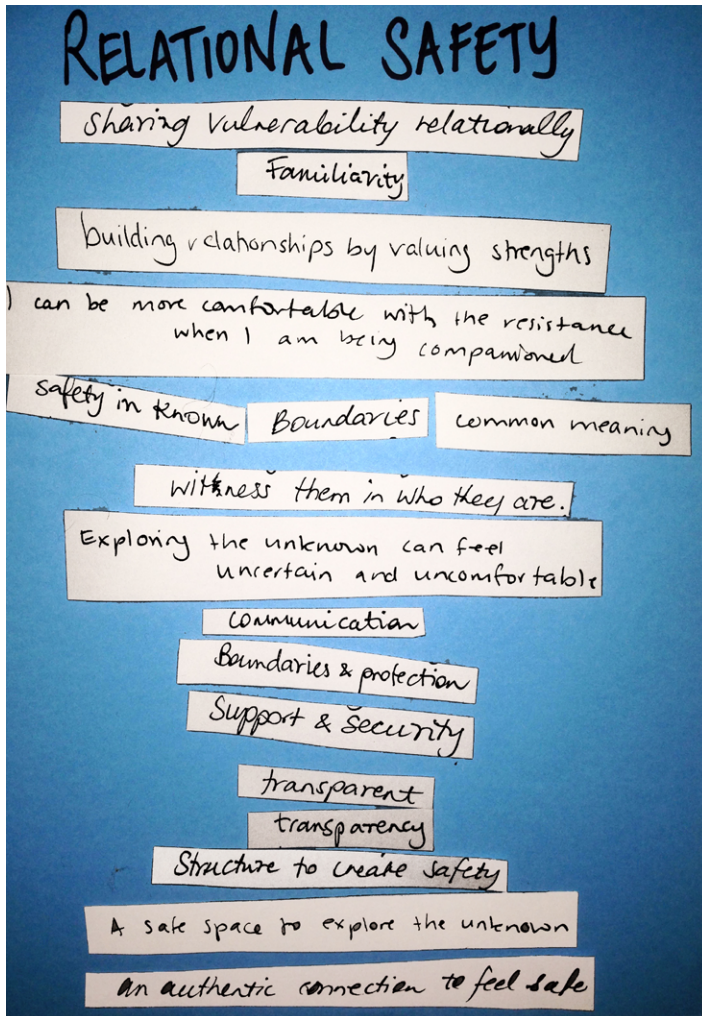 RELATIONAL SAFETY
Sharing vulnerability relationally
Familiarity
building relationships by valuing strengths
I can be more comfortable with the resistance
when I am being companioned
safety in known
Boundaries
common meaning
witness them in who they are.
Exploring the unknown can feel
uncertain and uncomfortable
communication
Boundaries & protection
Support & Security
transparent
transparency
Structure to create safety
A safe space to explore the unknown
an authentic connection to feel safe